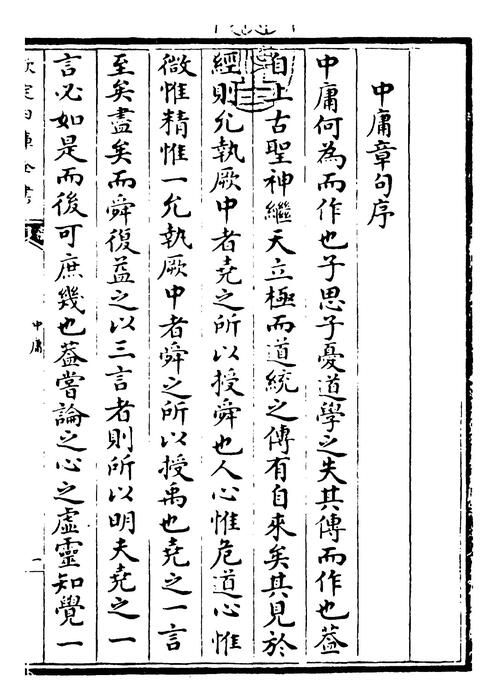 中庸章句序
中庸何為而作也子思子憂道學之失其傳而作也葢
自上古聖神繼天立極而道統之傳有自來矣其見於
經則允執厥中者堯之所以授舜也人心惟危道心惟
微惟精惟一允執厥中者舜之所以授禹也堯之一言
至矣盡矣而舜復益之以三言者則所以明夫堯之一
言必如是而後可庶幾也葢嘗論之心之虛靈知覺一
欽定四庫全書
中庸
一